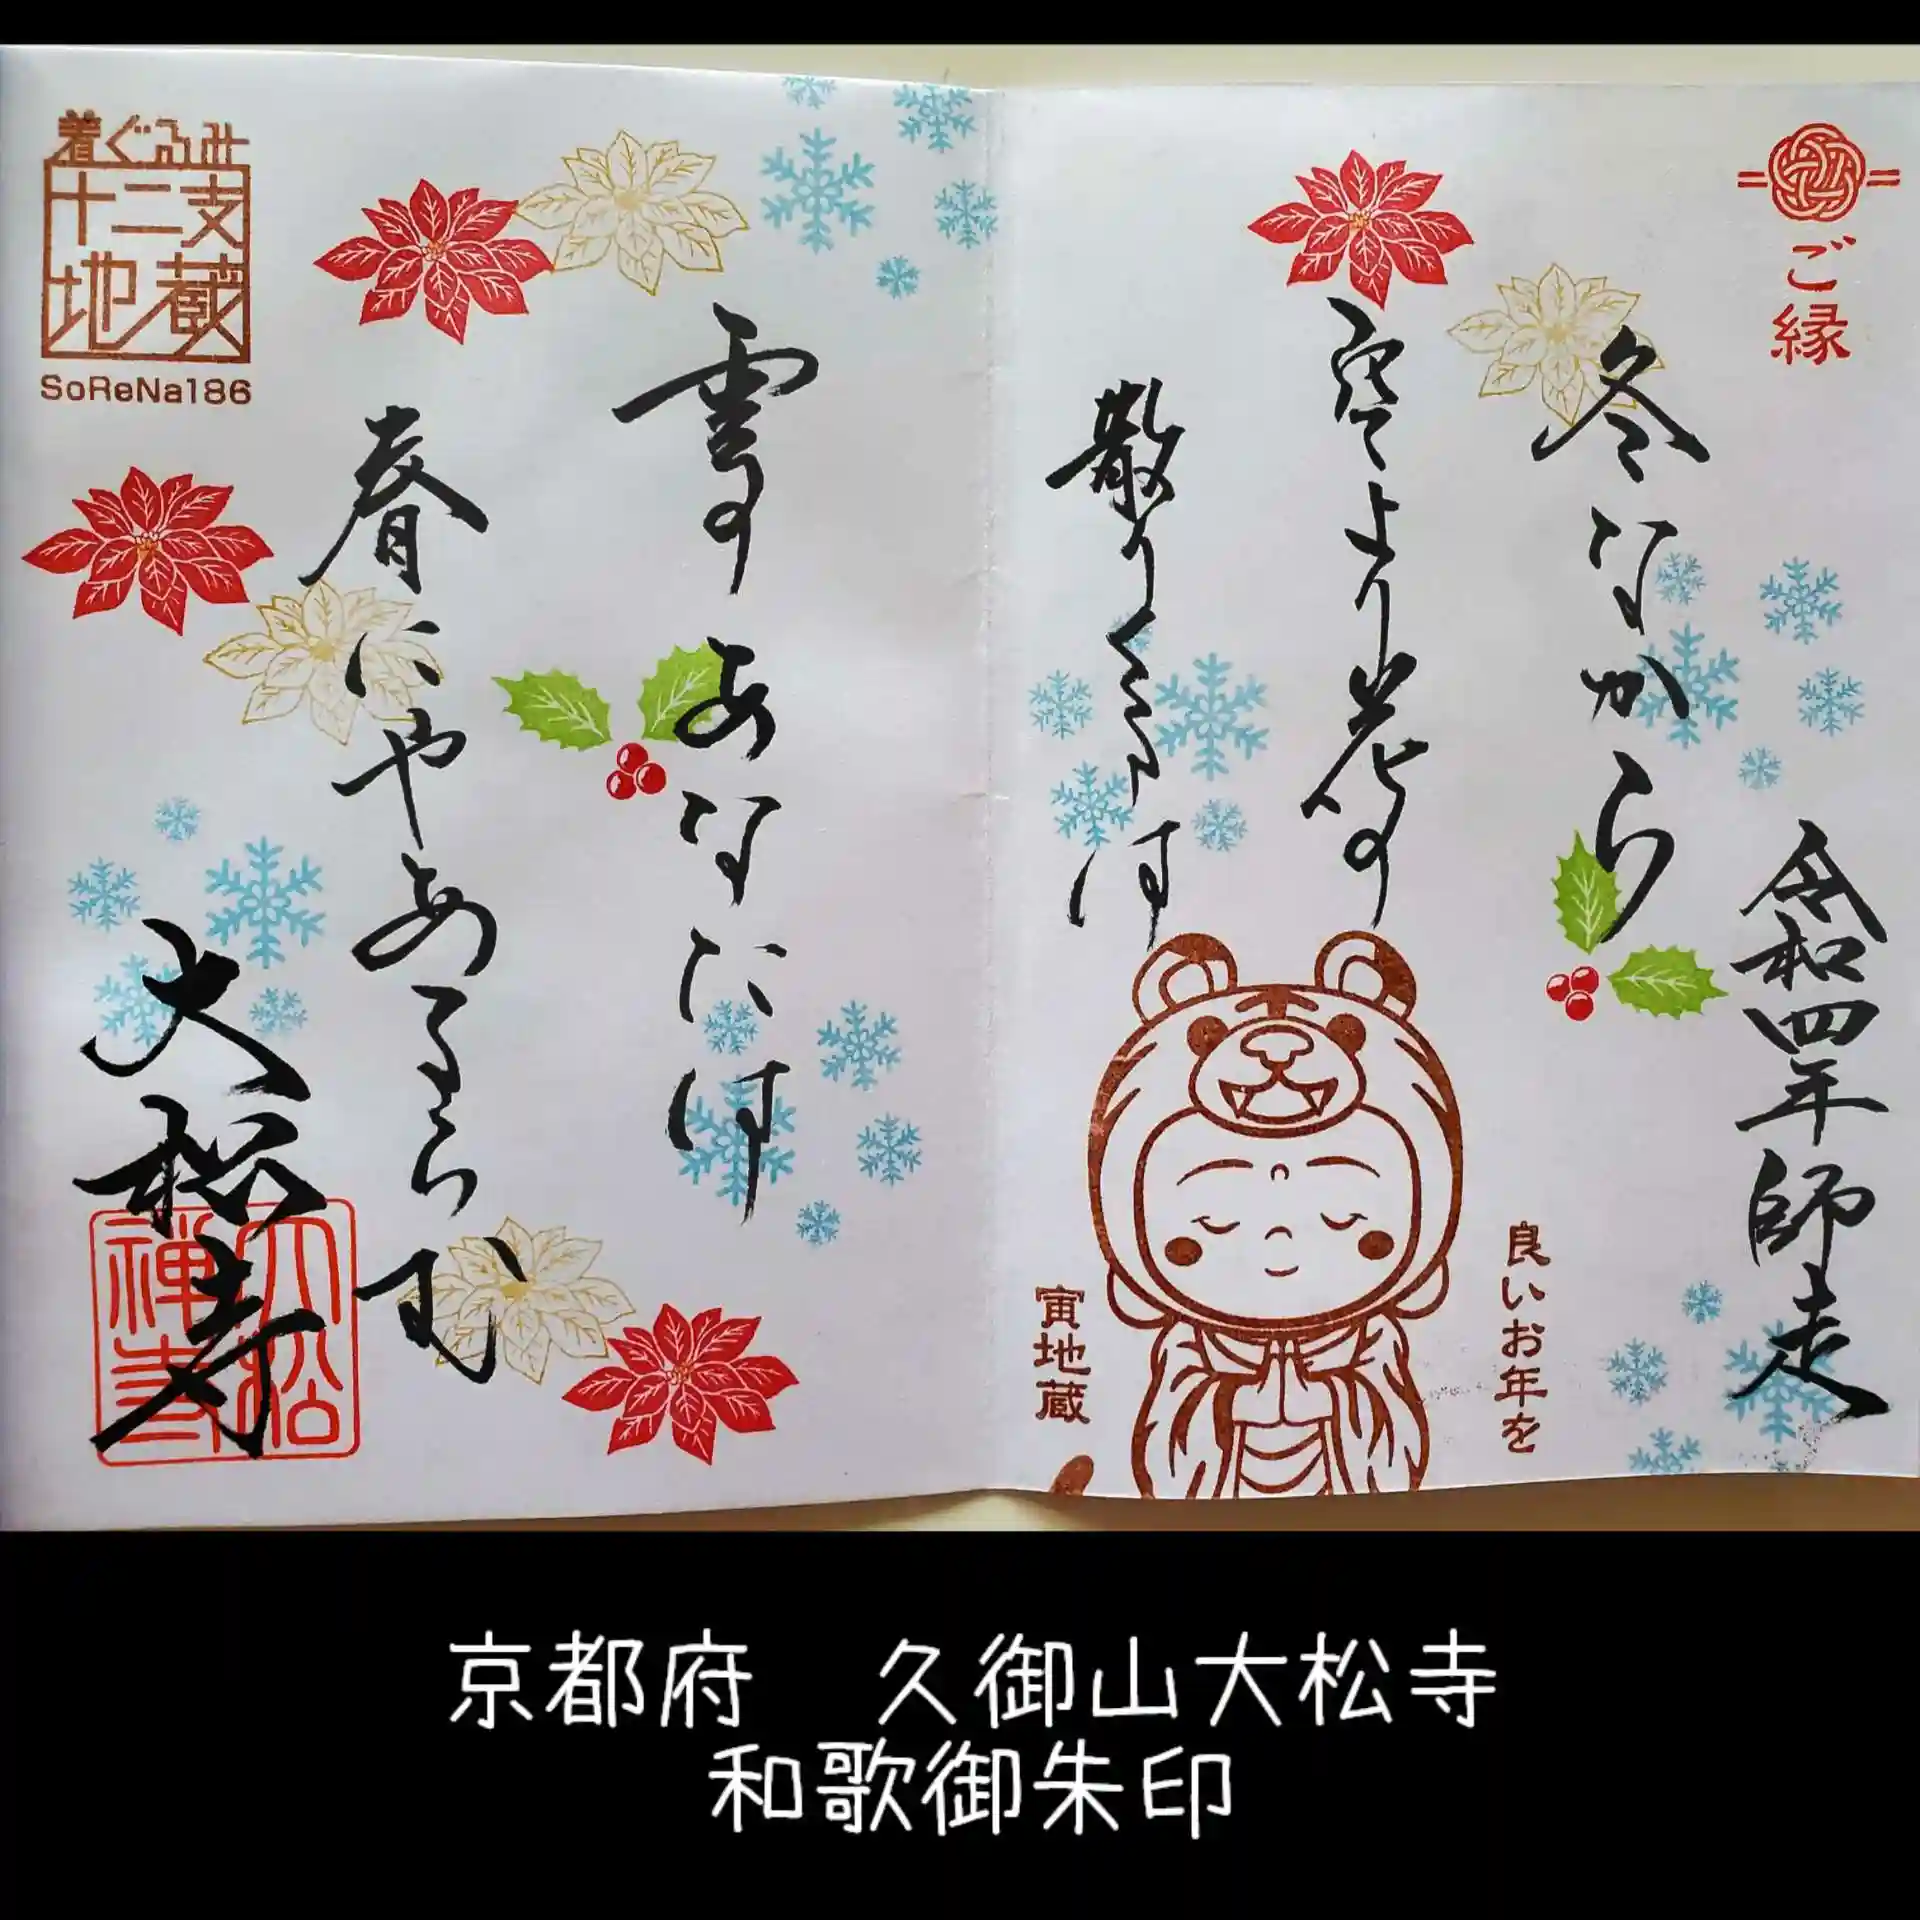 ご縁
令和四年師走
冬なから
空より花の
散りくるは
良いお年を
寅地蔵
雲の あなたは
春にやあるらむ
大松寺
大松
禅寺
着ぐるみ
十二支
地蔵
SoReNa186
京都府　久御山大松寺
和歌御朱印